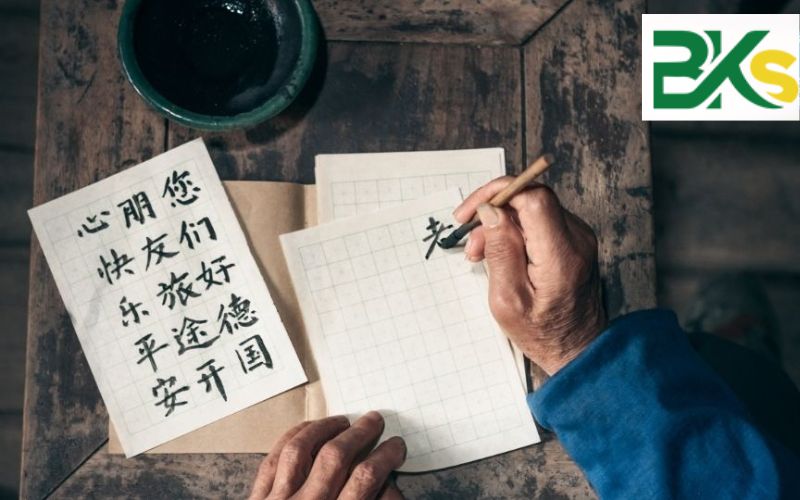 您们好德国
朋友旅途开
心快乐平安
老
BKs